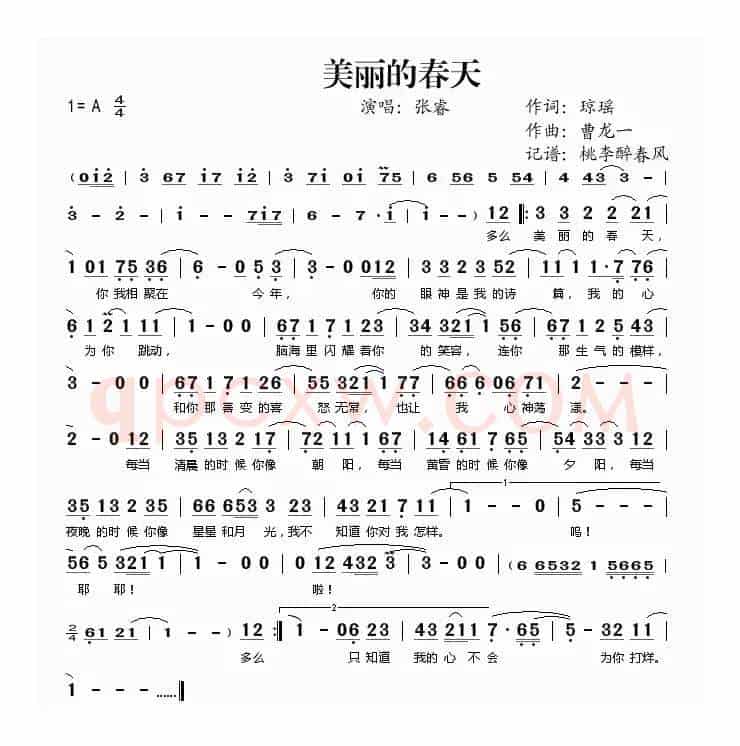 美丽的春天
1= A 4/4 演唱：张睿 作词：琼瑶
作曲：曹龙一
记谱：桃李醉春风
(012 | 3 67 17 12 | 3 71 01 75 | 6 56 5 54 | 4 43 3 - |
3 - 2 - | 1 - - 717 | 6 - 7 · 1 | 1 - - ) 12 ‖: 3 3 2 2 21 |
多么 美丽的春天，
1 01 75 36 | 6 - 05 3 | 3 - 0012 | 323 2 52 | 11 1 · 7 76 |
你我相聚在 今年， 你的 眼神是我的诗 篇，我的心
6 1 2 1 11 | 1 - 0 0 | 67 1 7 1 23 | 34 321 1 56 | 67 1 2 5 43 |
为你 跳动， 脑海里闪耀着你 的笑容，连你 那生气的模样，
3 - 0 0 | 67 1 7 1 26 | 55 321 1 77 | 66 6 06 71 | 2 - - - |
和你那善变的喜 怒无常，也让 我 心神荡 漾。
2 - 0 12 | 35 13 2 17 | 72 11 1 67 | 14 61 7 65 | 54 33 3 12 |
每当 清晨的时候你像 朝阳，每当 黄昏的时候你像 夕阳，每当
35 13 2 35 | 66 6653 3 | 043 21 7 11 | 1 - - 0 | 5 - - - |
夜晚的时候你像 星星和月 光，我不 知道你对我怎样。 呜！
1
56 5 321 1 | 1 - - - | 3 - 0 0 | 012 432 3 | 2 - - - | (6 6532 1 5665 |
耶 耶！ 啦！
2/4 61 21 | 1 - - ) 12 :‖ 1 - 06 23 | 43 211 7 · 65 | 5 - 32 11 |
2
多么 只知道 我的心不会 为你打烊。
1 - - - ……‖
qpcxw.COM